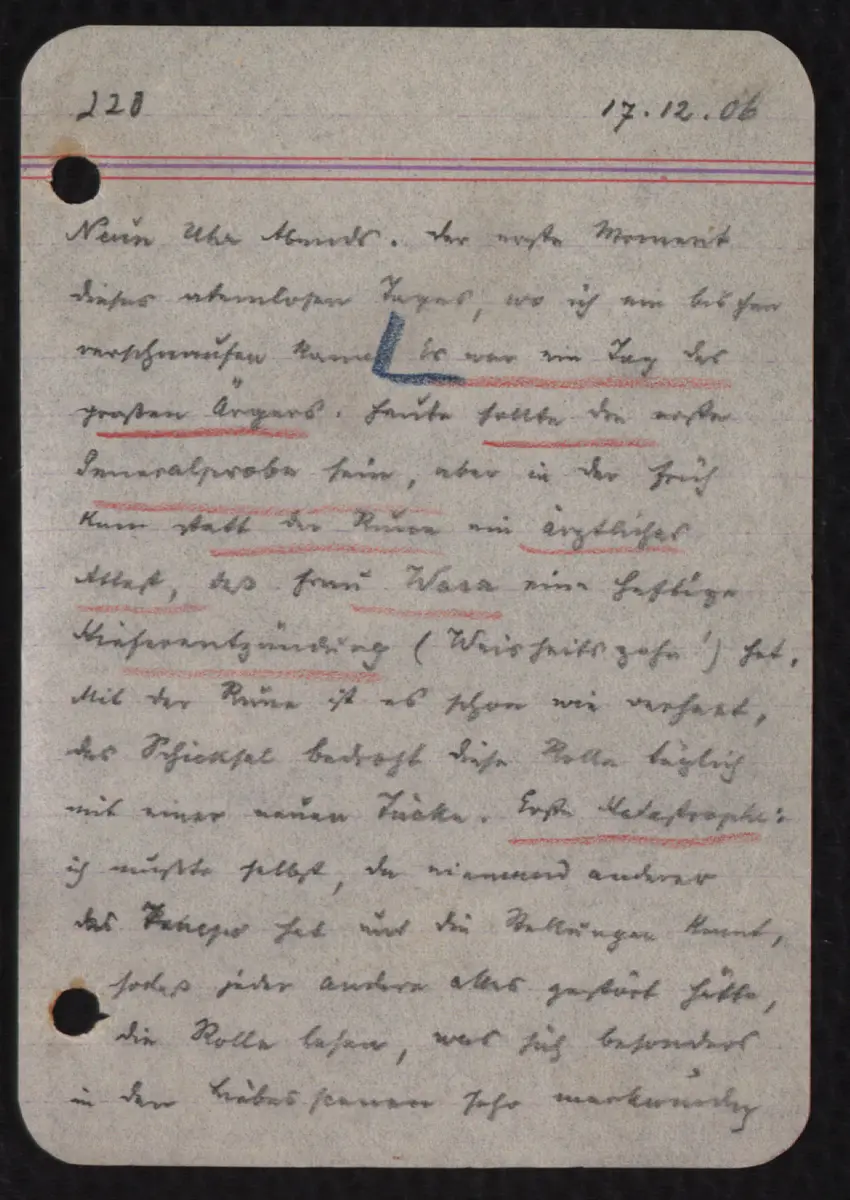 220
17.12.06
Neun Uhr Abends. Der erste Moment
dieses atemlosen Tages, wo ich ein bischen
verschnaufen kann. Es war ein Tag des
großen Ärgers. Heute sollte die erste
Generalprobe sein, aber in der Früh
kam statt der Rune ein ärztliches
Attest, daß Frau Wara eine heftige
Kieferentzündung (Weisheitszahn!) hat.
Mit der Rune ist es schon wie verhext,
das Schicksal bedroht diese Rolle täglich
mit einer neuen Tücke. Erste Katastrophe:
ich mußte selbst, da niemand anderer
das Tempo hat und die Stellungen kennt,
sodaß jeder andere alles gestört hätte,
die Rolle lesen, was sich besonders
in den Liebesscenen sehr merkwürdig